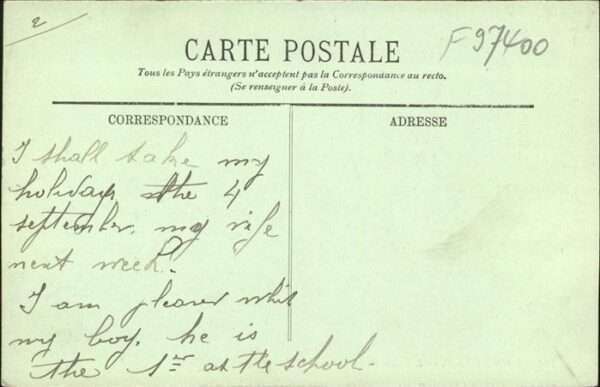 2
F 97400
CARTE POSTALE
Tous les Pays étrangers n'acceptent pas la Correspondance au recto.
(Se renseigner à la Poste).
CORRESPONDANCE
ADRESSE
I shall take my
holidays the 4
september. my wife
next week.
I am pleaser whit
my boy. he is
the 1er at the school.